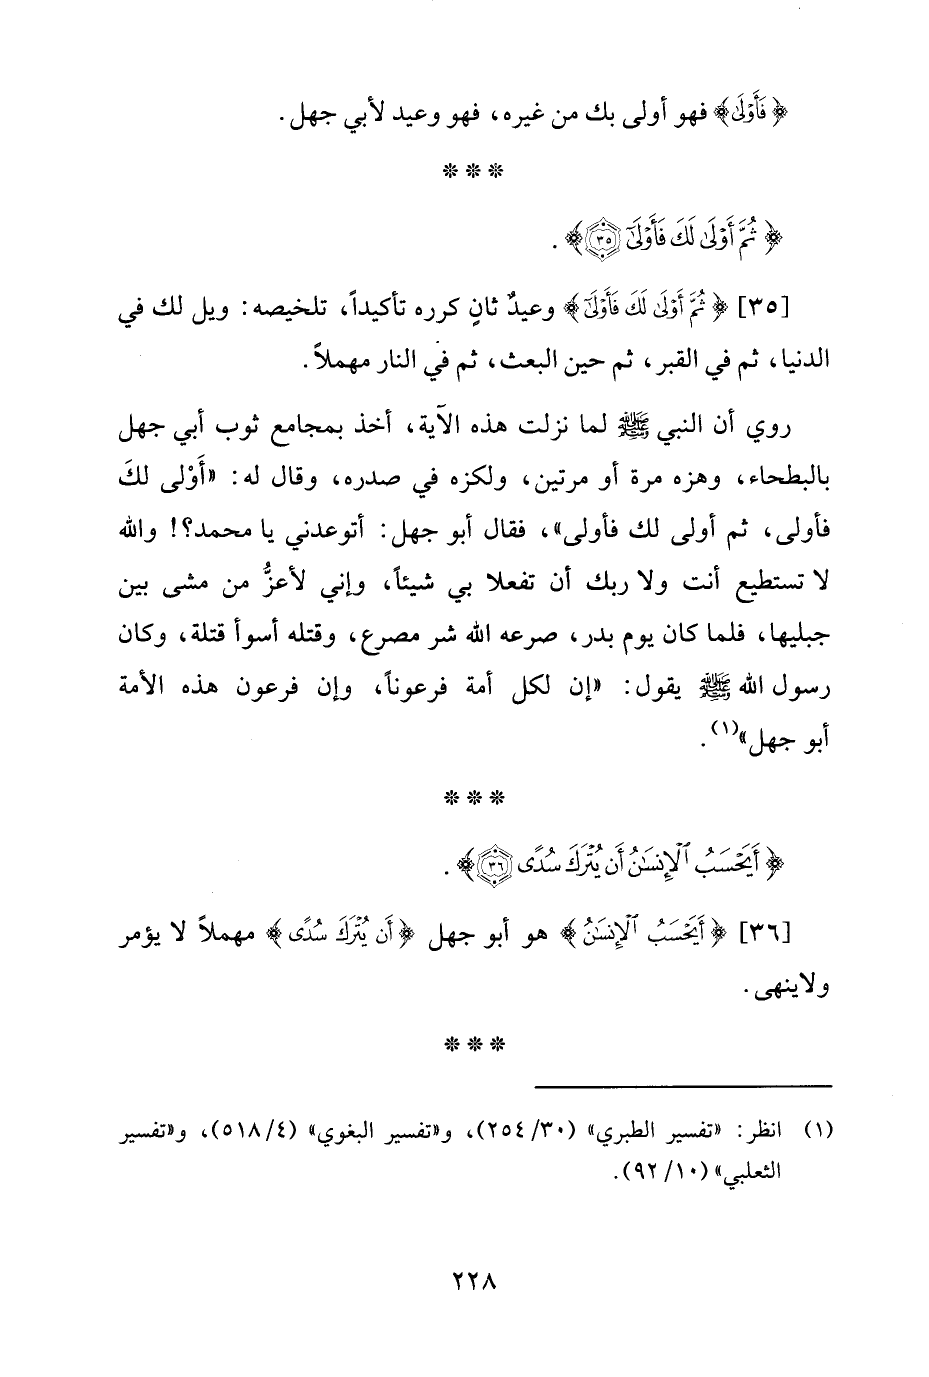 ﴿فَأَوْلَى﴾ فهو أولى بك من غيره، فهو وعيد لأبي جهل.
***
﴿ثُمَّ أَوْلَى لَكَ فَأَوْلَى ٣٥﴾.
[٣٥] ﴿ثُمَّ أَوْلَى لَكَ فَأَوْلَى﴾ وعيدٌ ثانٍ كرره تأكيداً، تلخيصه: ويل لك في
الدنيا، ثم في القبر، ثم حين البعث، ثم في النار مهملاً.
روي أن النبي ﷺ لما نزلت هذه الآية، أخذ بمجامع ثوب أبي جهل
بالبطحاء، وهزه مرة أو مرتين، ولكزه في صدره، وقال له: «أَوْلى لكَ
فأولى، ثم أولى لك فأولى»، فقال أبو جهل: أتوعدني يا محمد؟! والله
لا تستطيع أنت ولا ربك أن تفعلا بي شيئاً، وإني لأعزُّ من مشى بين
جبليها، فلما كان يوم بدر، صرعه الله شر مصرع، وقتله أسوأ قتلة، وكان
رسول الله ﷺ يقول: «إن لكل أمة فرعوناً، وإن فرعون هذه الأمة
أبو جهل»(١).
***
﴿أَيَحْسَبُ ٱلْإِنسَٰنُ أَن يُتْرَكَ سُدًى ٣٦﴾.
[٣٦] ﴿أَيَحْسَبُ ٱلْإِنسَٰنُ﴾ هو أبو جهل ﴿أَن يُتْرَكَ سُدًى﴾ مهملاً لا يؤمر
ولاينهى.
***
(١) انظر: «تفسير الطبري» (٣٠/ ٢٥٤)، و«تفسير البغوي» (٤/ ٥١٨)، و«تفسير
الثعلبي» (١٠/ ٩٢).
٢٢٨